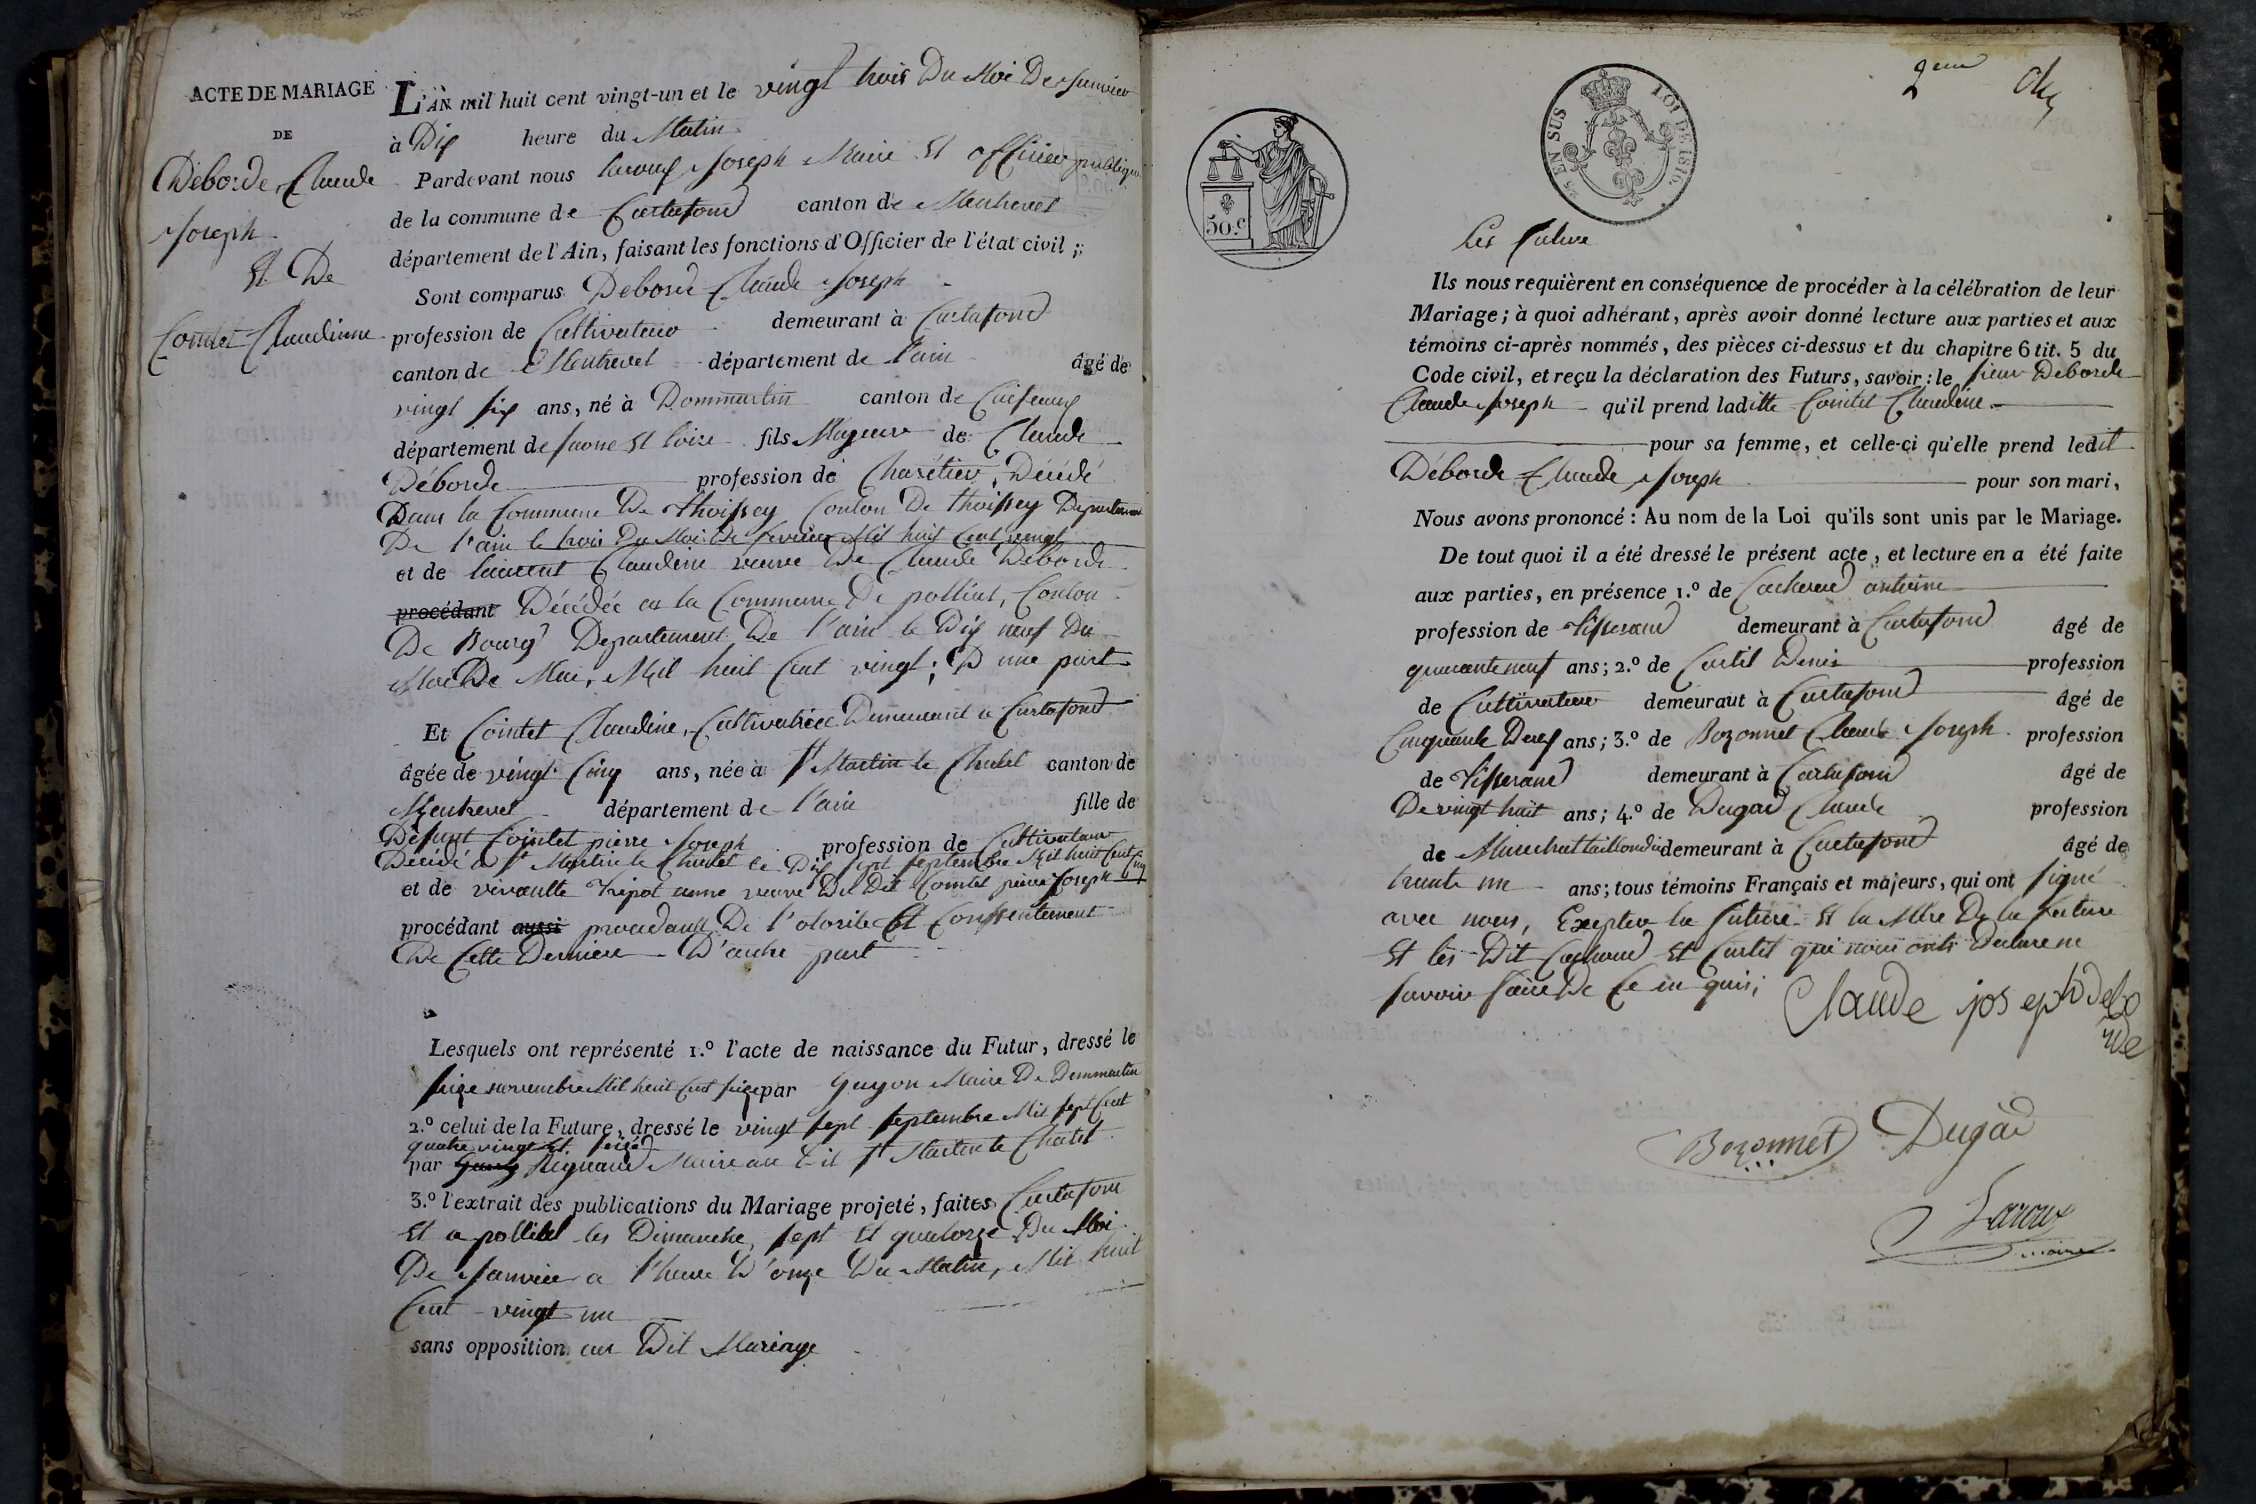 ACTE DE MARIAGE
DE
Déborde, Claude
Joseph
Et De
Cointet Claudinne
L'AN mil huit cent vingt-un et le vingt trois Du Moi De Janvier
à Dix heure du Matin
Pardevant nous Laroux Joseph Maire Et officier publique
de la commune de Curtafond canton de Montrevel
département de l'Ain, faisant les fonctions d'Officier de l'état civil ;
Sont comparus Déborde Claude Joseph
profession de Cultivateur demeurant à Curtafond
canton de Montrevel département de l'ain âgé de
vingt six ans, né à Dommartin canton de Cuiseaux
département de Saone Et Loire fils Majeure de Claude
Déborde profession de Charétier, Décédé
Dans la Commune De thoissey Conton De thoissey Departement
De l'ain le trois Du Moi De fevrier Mil huit Cent vingt
et de laurent Claudine veuve De Claude Déborde
procédant Décédée en la Commune De polliat, Conton
De Bourg Departement De l'ain le Dix neuf Du
Moi De Mai, Mil huit Cent vingt ; D'une part
Et Cointet Claudine, Cultivatrice Demeurant a Curtafond
âgée de vingt Cinq ans, née à St Martin le Chatel canton de
Montrevel département de l'ain fille de
Défunt Cointet pierre Joseph profession de Cultivateur
Décédé a St Martin le Chatel le Dix sept septembre Mil huit Cent Cinq
et de vivantte tripot anne veuve Du Dit Cointet pierre Joseph
procédant aussi procedant De l'otorité Et Consentement
De Cette Derniere D'autre part
Lesquels ont représenté 1.º l'acte de naissance du Futur, dressé le
seize novembre Mil huit Cent seize par Guyon Maire De Dommartin
2.º celui de la Future, dressé le vingt sept septembre Mil sept Cent
quatre vingt Et seize
par Riguaud Maire au Dit St Martin le Chatel
3.º l'extrait des publications du Mariage projeté, faites Curtafond
Et a polliat les Dimanche, sept Et quatorze Du Moi
De Janvier a l'heure D'onze Du Matin, Mil huit
Cent vingt un
sans opposition au Dit Mariage
2eme
50.c
EN SUS
LOI DE 1816.
Les future
Ils nous requièrent en conséquence de procéder à la célébration de leur
Mariage ; à quoi adhérant, après avoir donné lecture aux parties et aux
témoins ci-après nommés, des pièces ci-dessus et du chapitre 6 tit. 5 du
Code civil, et reçu la déclaration des Futurs, savoir : le sieur Déborde
Claude Joseph qu'il prend laditte Cointet Claudine
pour sa femme, et celle-ci qu'elle prend ledit
Déborde Claude Joseph pour son mari,
Nous avons prononcé : Au nom de la Loi qu'ils sont unis par le Mariage.
De tout quoi il a été dressé le présent acte, et lecture en a été faite
aux parties, en présence 1.º de Cochard antoine
profession de Tisserand demeurant à Curtafond âgé de
quarante neuf ans ; 2.º de Curtil Denis profession
de Cultivateur demeurant à Curtafond âgé de
Cinquante Deux ans ; 3.º de Bozonnet Claude Joseph profession
de Tisserand demeurant à Curtafond âgé de
De vingt huit ans ; 4.º de Dugad Claude profession
de Marechal taillandier demeurant à Curtafond âgé de
trante un ans ; tous témoins Français et majeurs, qui ont signé
avec nous, Exepter la future Et la Mère De la future
Et les Dit Cochard Et Curtil qui nous onts Déclaré ne
savoir faire De Ce en quis ;
Claude joseph debo
rde
Bozonnet Dugad
Laroux
maire